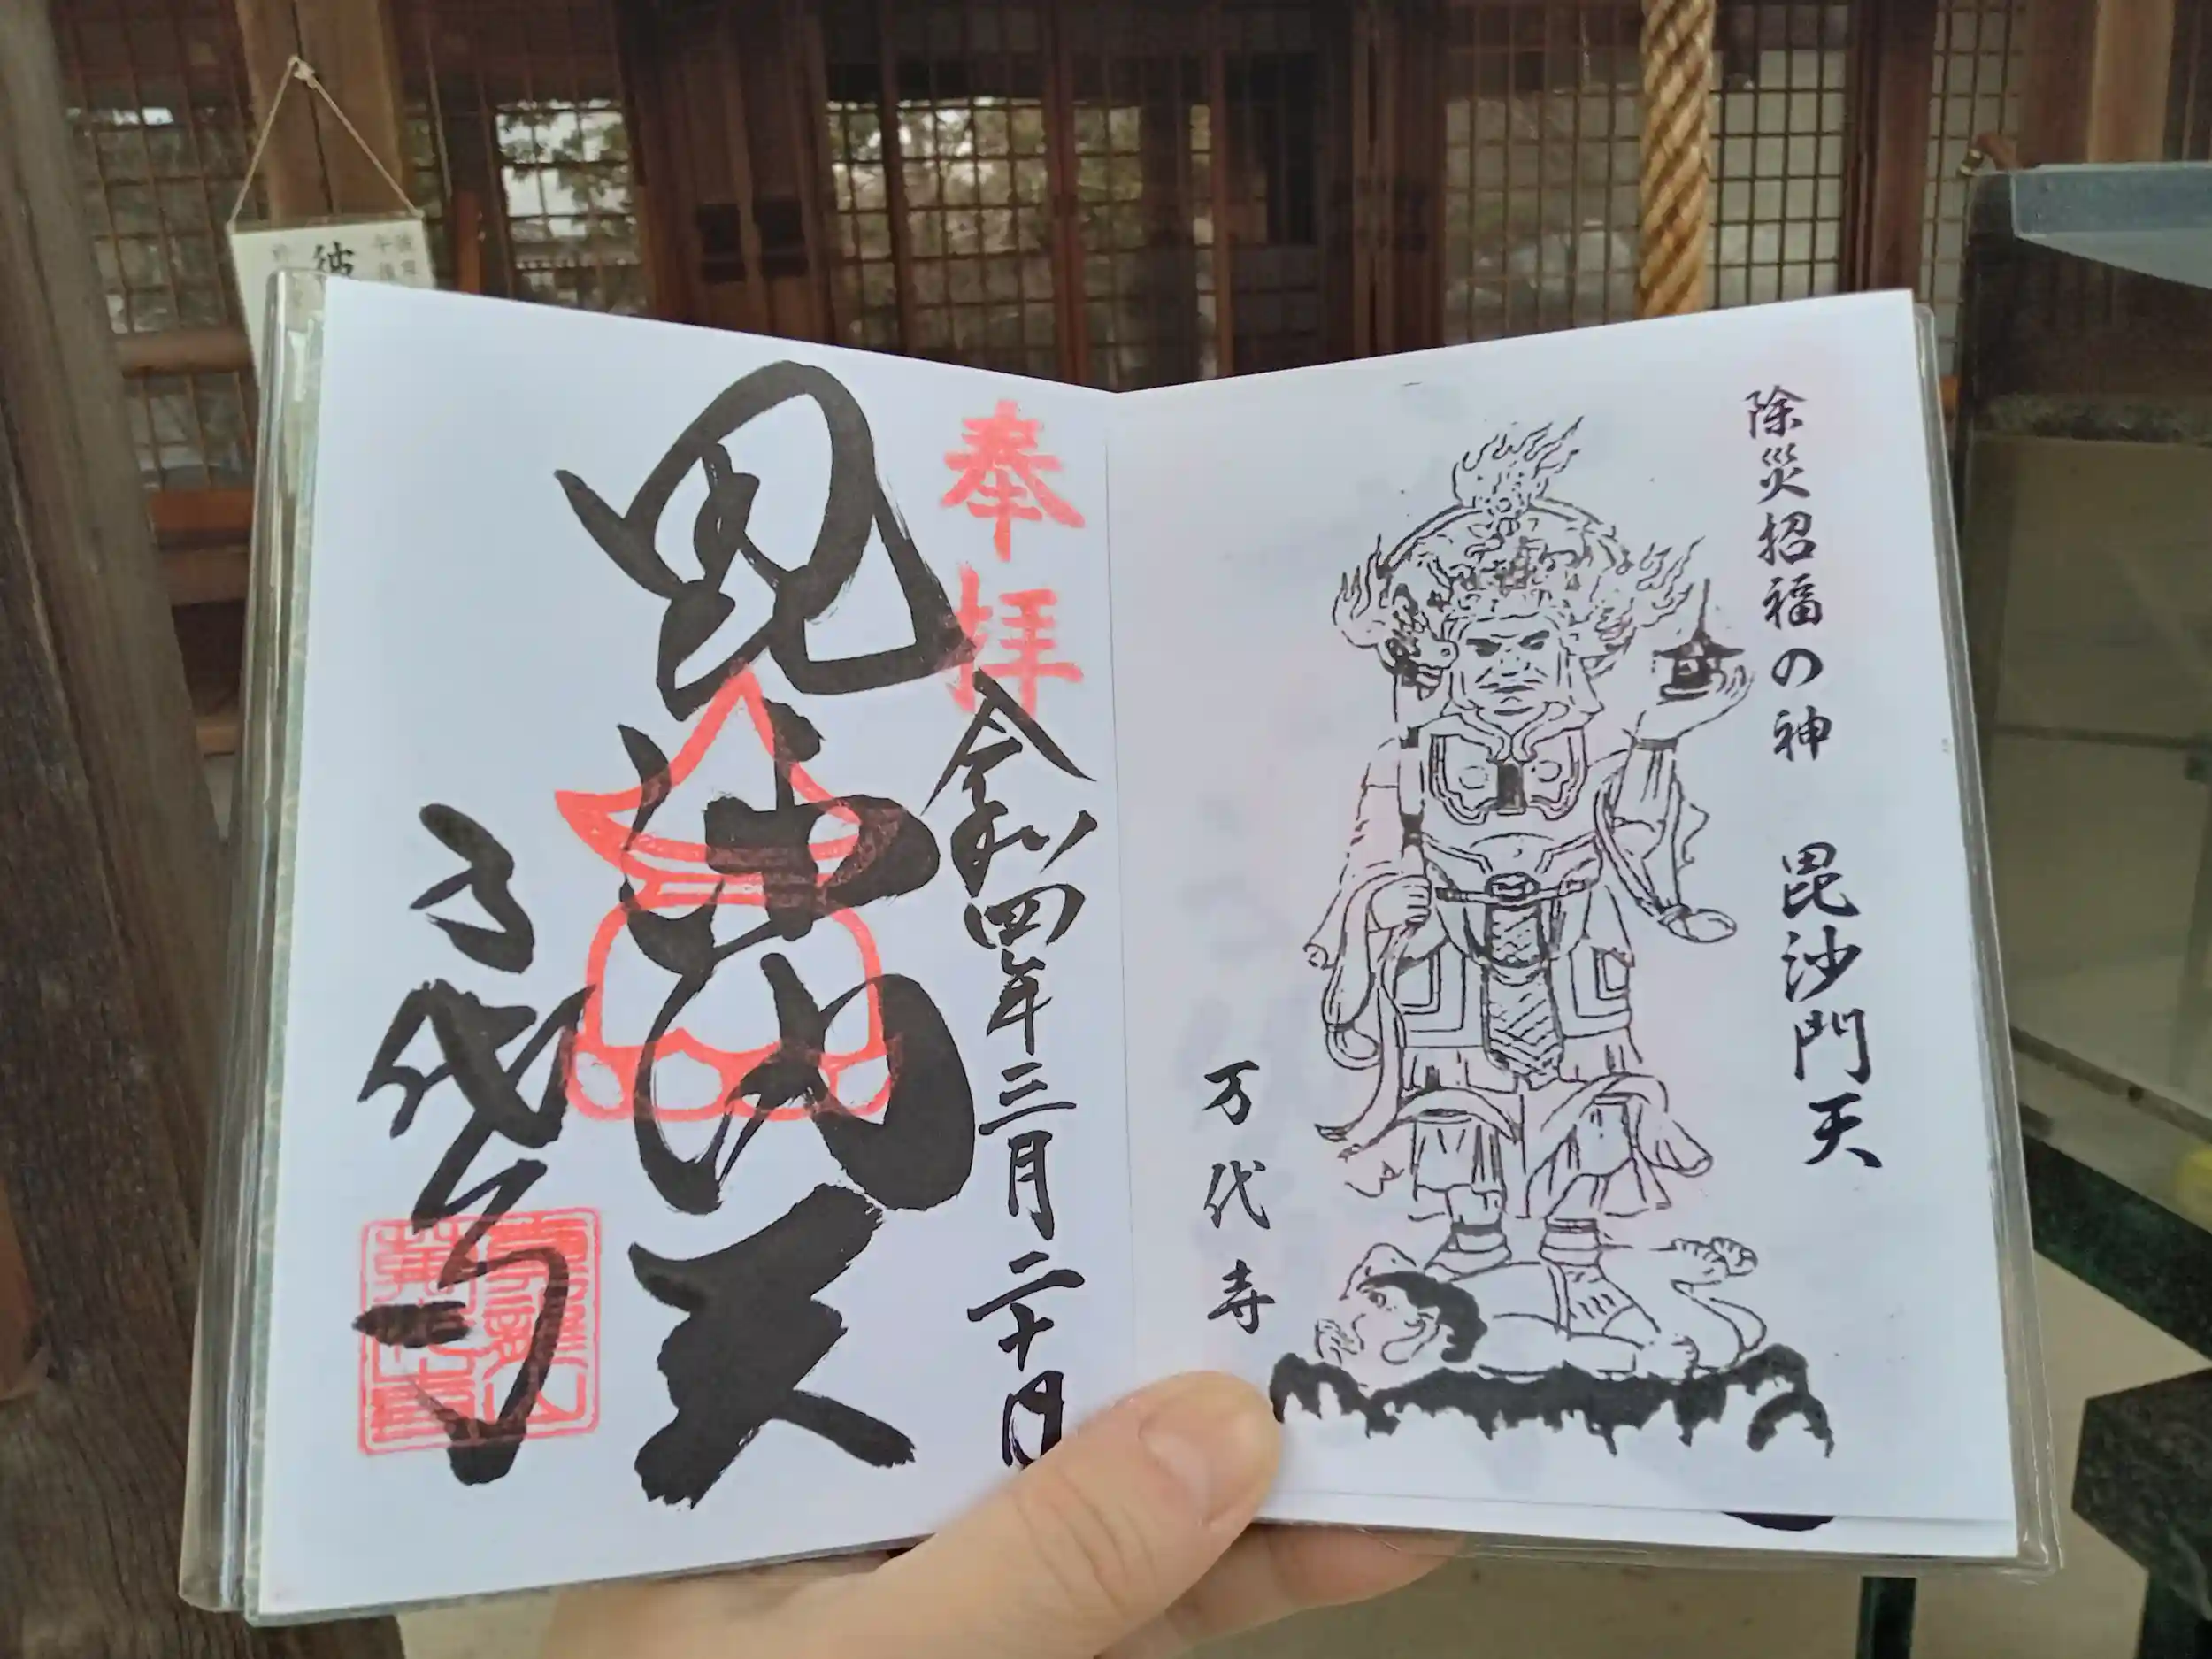 除災招福の神 毘沙門天
万代寺
奉拝
令和四年三月二十日
毘沙門天
万代寺